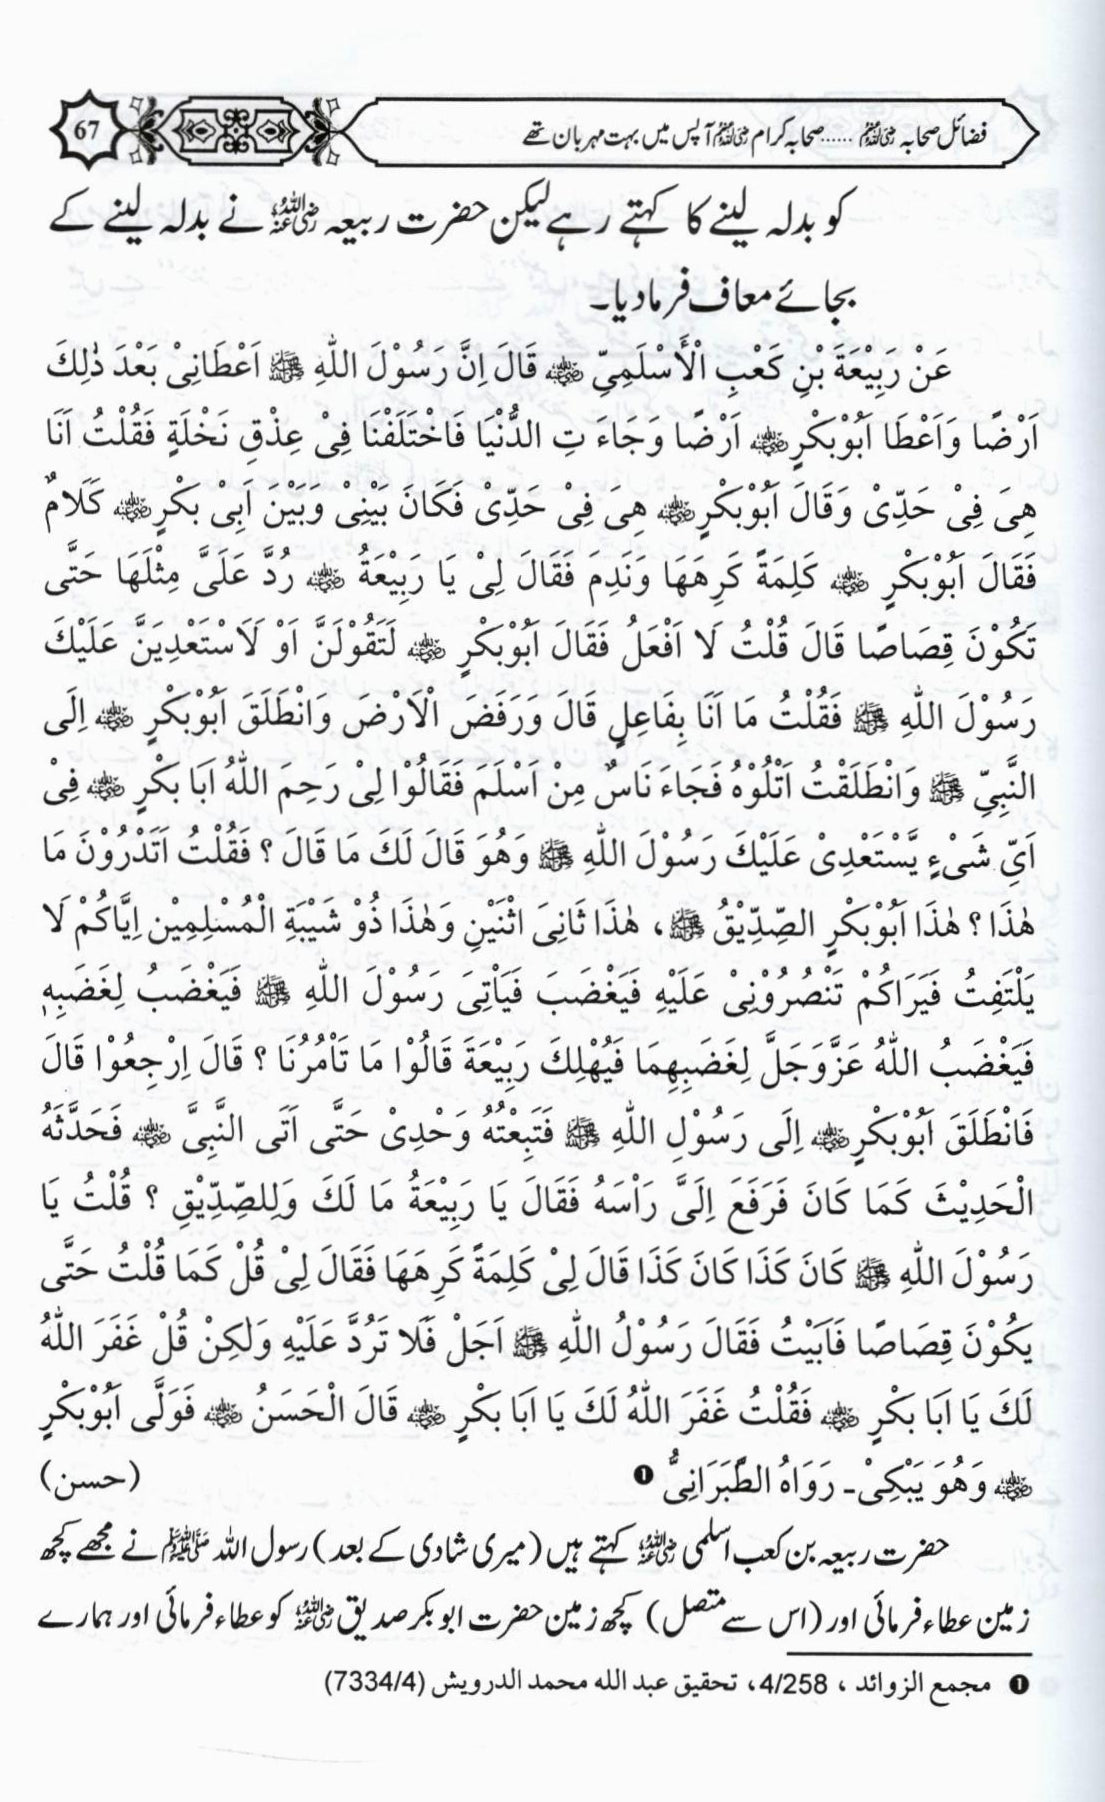 فضائل صحابہ رضی اللہ عنہم ...... صحابہ کرام رضی اللہ عنہم آپس میں بہت مہربان تھے
67
کو بدلہ لینے کا کہتے رہے لیکن حضرت ربیعہ رضی اللہ عنہ نے بدلہ لینے کے
بجائے معاف فرما دیا۔
عَنْ رَبِيْعَةَ بْنِ كَعْبِ الْأَسْلَمِيِّ رضی اللہ عنہ قَالَ اِنَّ رَسُوْلَ اللهِ ﷺ اَعْطَانِیْ بَعْدَ ذٰلِكَ
اَرْضًا وَاَعْطَا اَبُوْبَكْرٍ رضی اللہ عنہ اَرْضًا وَجَاءَ تِ الدُّنْيَا فَاخْتَلَفْنَا فِیْ عِذْقِ نَخْلَةٍ فَقُلْتُ اَنَا
هِیَ فِیْ حَدِّیْ وَقَالَ اَبُوْبَكْرٍ رضی اللہ عنہ هِیَ فِیْ حَدِّیْ فَكَانَ بَيْنِیْ وَبَيْنَ اَبِیْ بَكْرٍ رضی اللہ عنہ كَلَامٌ
فَقَالَ اَبُوْبَكْرٍ رضی اللہ عنہ كَلِمَةً كَرِهَهَا وَنَدِمَ فَقَالَ لِیْ يَا رَبِيْعَةُ رضی اللہ عنہ رُدَّ عَلَیَّ مِثْلَهَا حَتَّی
تَكُوْنَ قِصَاصًا قَالَ قُلْتُ لَا اَفْعَلُ فَقَالَ اَبُوْبَكْرٍ رضی اللہ عنہ لَتَقُوْلَنَّ اَوْ لَاَسْتَعْدِيَنَّ عَلَيْكَ
رَسُوْلَ اللهِ ﷺ فَقُلْتُ مَا اَنَا بِفَاعِلٍ قَالَ وَرَفَضَ الْاَرْضَ وَانْطَلَقَ اَبُوْبَكْرٍ رضی اللہ عنہ اِلَی
النَّبِیِّ ﷺ وَانْطَلَقْتُ اَتْلُوْهُ فَجَاءَ نَاسٌ مِنْ اَسْلَمَ فَقَالُوْا لِیْ رَحِمَ اللهُ اَبَا بَكْرٍ رضی اللہ عنہ فِیْ
اَیِّ شَیْءٍ يَّسْتَعْدِیْ عَلَيْكَ رَسُوْلَ اللهِ ﷺ وَهُوَ قَالَ لَكَ مَا قَالَ ؟ فَقُلْتُ اَتَدْرُوْنَ مَا
هٰذَا ؟ هٰذَا اَبُوْبَكْرٍ الصِّدِّيْقُ ﷺ ، هٰذَا ثَانِیَ اثْنَيْنِ وَهٰذَا ذُوْ شَيْبَةِ الْمُسْلِمِيْنِ اِيَّاكُمْ لَا
يَلْتَفِتُ فَيَرَاكُمْ تَنْصُرُوْنِیْ عَلَيْهِ فَيَغْضَبَ فَيَاْتِیَ رَسُوْلَ اللهِ ﷺ فَيَغْضَبُ لِغَضَبِهٖ
فَيَغْضَبُ اللهُ عَزَّوَجَلَّ لِغَضَبِهِمَا فَيُهْلِكَ رَبِيْعَةَ قَالُوْا مَا تَاْمُرُنَا ؟ قَالَ اِرْجِعُوْا قَالَ
فَانْطَلَقَ اَبُوْبَكْرٍ رضی اللہ عنہ اِلَی رَسُوْلِ اللهِ ﷺ فَتَبِعْتُهُ وَحْدِیْ حَتَّی اَتَی النَّبِیَّ رضی اللہ عنہ فَحَدَّثَهُ
الْحَدِيْثَ كَمَا كَانَ فَرَفَعَ اِلَیَّ رَاْسَهُ فَقَالَ يَا رَبِيْعَةُ مَا لَكَ وَلِلصِّدِّيْقِ ؟ قُلْتُ يَا
رَسُوْلَ اللهِ ﷺ كَانَ كَذَا كَانَ كَذَا قَالَ لِیْ كَلِمَةً كَرِهَهَا فَقَالَ لِیْ قُلْ كَمَا قُلْتُ حَتَّی
يَكُوْنَ قِصَاصًا فَاَبَيْتُ فَقَالَ رَسُوْلُ اللهِ ﷺ اَجَلْ فَلَا تَرُدَّ عَلَيْهِ وَلٰكِنْ قُلْ غَفَرَ اللهُ
لَكَ يَا اَبَا بَكْرٍ رضی اللہ عنہ فَقُلْتُ غَفَرَ اللهُ لَكَ يَا اَبَا بَكْرٍ رضی اللہ عنہ قَالَ الْحَسَنُ رضی اللہ عنہ فَوَلَّی اَبُوْبَكْرٍ
رضی اللہ عنہ وَهُوَ يَبْكِیْ۔ رَوَاهُ الطَّبَرَانِیُّ ❶ (حسن)
حضرت ربیعہ بن کعب اسلمی رضی اللہ عنہ کہتے ہیں (میری شادی کے بعد) رسول اللہ ﷺ نے مجھے کچھ
زمین عطاء فرمائی اور (اس سے متصل) کچھ زمین حضرت ابوبکر صدیق رضی اللہ عنہ کو عطاء فرمائی اور ہمارے
❶ مجمع الزوائد ، 4/258، تحقیق عبد الله محمد الدرویش (7334/4)